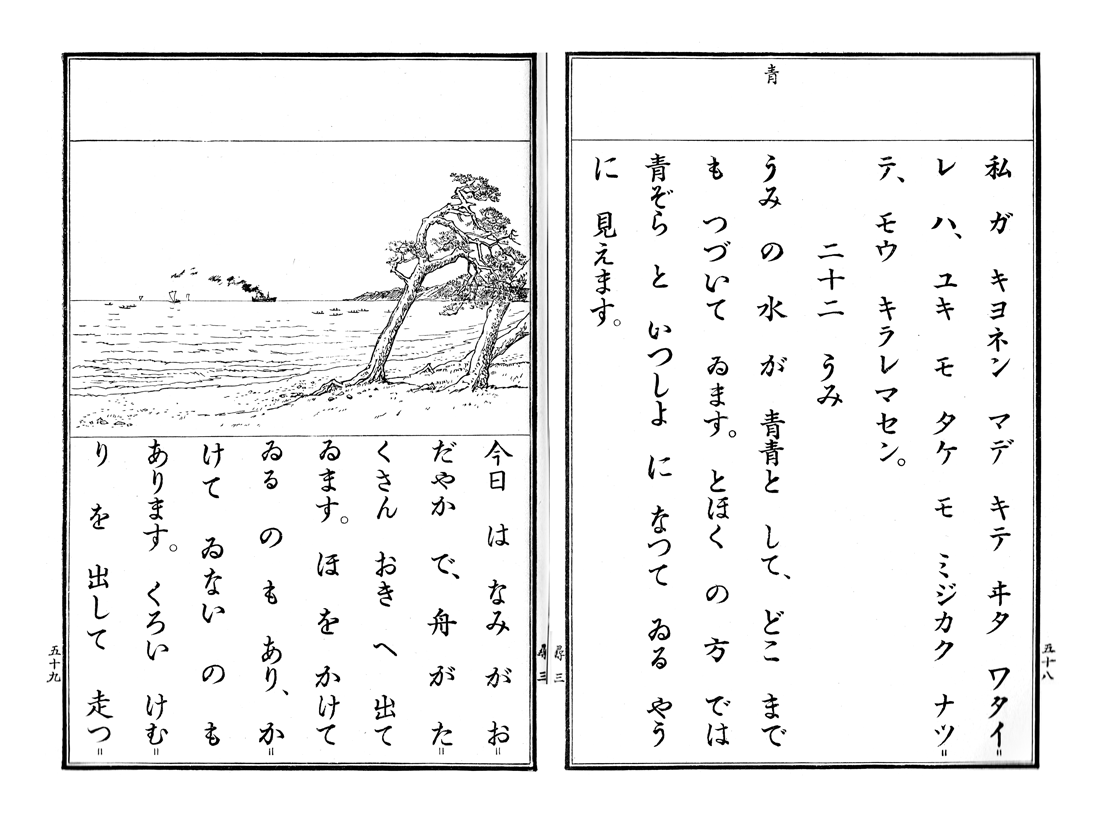 青
私 ガ キヨネン マデ キテ ヰタ ワタイ=
レ ハ、 ユキ モ タケ モ ミジカク ナツ=
テ、 モウ キラレマセン。
二十二 うみ
うみ の 水 が 青青と して、 どこ まで
も つづいて ゐます。 とほく の 方 では
青ぞら と いつしよ に なつて ゐる やう
に 見えます。
五十八
尋三
今日 は なみ が お=
だやか で、 舟 が た=
くさん おき へ 出て
ゐます。 ほ を かけて
ゐる の も あり、 か=
けて ゐない の も
あります。 くろい けむ=
り を 出して 走つ=
尋三
五十九